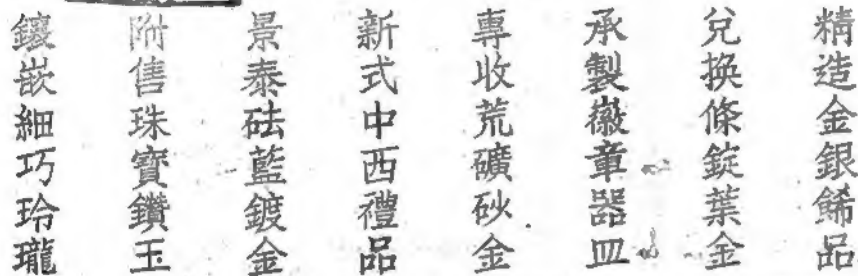 精造金銀餙品
兌換條錠葉金
承製徽章器皿
專收荒礦砂金
新式中西禮品
景泰砝藍鍍金
附售珠寶鑽玉
鑲嵌細巧玲瓏